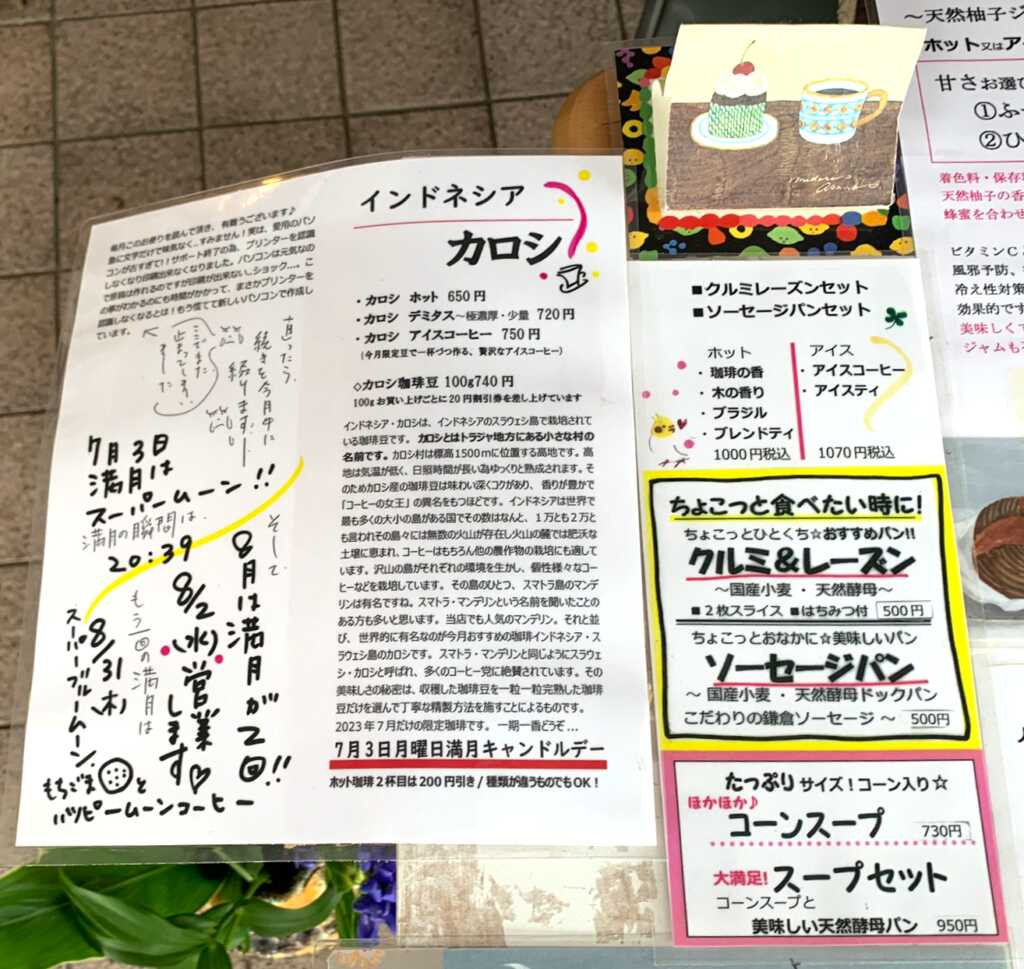 毎月このお便りを読んで頂き、有難うございます♪
急に文字だけで味気なく、すみません！実は、愛用のパソ
コンが古すぎて！！サポート終了の為、プリンターを認識
しなくなり印刷出来なくなりました。パソコンは元気なの
で原稿は作れるのですが印刷が出来ない、ショック…。こ
の事がわかるのにも時間がかかって、まさかプリンターを
認識しなくなるとは！もう慌てて新しいパソコンで作成し
ています。
ここでまた
止まってしま
いました
直ったら、
続きを今月中に
綴ります！
7月3日
満月は
スーパームーン!!
満月の瞬間は、
20:39
そして、
8月は満月が2回!!
8/2(水)営業します♡
もう1回の満月は
8/31(木)
スーパーブルームーン
もちごまと
ハッピームーンコーヒー
インドネシア
カロシ
・カロシ ホット 650円
・カロシ デミタス～極濃厚・少量 720円
・カロシ アイスコーヒー 750円
（今月限定豆で一杯づつ作る、贅沢なアイスコーヒー）
◇カロシ珈琲豆 100g740円
100gお買い上げごとに20円割引券を差し上げています
インドネシア・カロシは、インドネシアのスラウェシ島で栽培されて
いる珈琲豆です。カロシとはトラジャ地方にある小さな村の
名前です。カロシ村は標高1500mに位置する高地です。高
地は気温が低く、日照時間が長い為ゆっくりと熟成されます。そ
のためカロシ産の珈琲豆は味わい深くコクがあり、香りが豊かで
「コーヒーの女王」の異名をもつほどです。インドネシアは世界で
最も多くの大小の島がある国でその数はなんと、1万とも2万と
も言われその島々には無数の火山が存在し火山の麓では肥沃な
土壌に恵まれ、コーヒーはもちろん他の農作物の栽培にも適して
います。沢山の島がそれぞれの環境を生かし、個性様々なコー
ヒーなどを栽培しています。その島のひとつ、スマトラ島のマンデ
リンは有名ですね。スマトラ・マンデリンという名前を聞いたことの
ある方も多いと思います。当店でも人気のマンデリン。それと並
び、世界的に有名なのが今月おすすめの珈琲インドネシア・ス
ラウェシ島のカロシです。スマトラ・マンデリンと同じようにスラウェ
シ・カロシと呼ばれ、多くのコーヒー党に絶賛されています。その
美味しさの秘密は、収穫した珈琲豆を一粒一粒完熟した珈琲
豆だけを選んで丁寧な精製方法を施すことによるものです。
2023年7月だけの限定珈琲です。一期一香どうぞ…
7月3日月曜日満月キャンドルデー
ホット珈琲2杯目は200円引き/種類が違うものでもOK！
■クルミレーズンセット
■ソーセージパンセット
ホット
・珈琲の香
・木の香り
・ブラジル
・ブレンドティ
1000円税込
アイス
・アイスコーヒー
・アイスティ
1070円税込
ちょこっと食べたい時に！
ちょこっとひとくち☆おすすめパン!!
クルミ&レーズン
～国産小麦・天然酵母～
■2枚スライス ■はちみつ付 500円
ちょこっとおなかに☆美味しいパン
ソーセージパン
～国産小麦・天然酵母ドックパン
こだわりの鎌倉ソーセージ～ 500円
たっぷりサイズ！コーン入り☆
ほかほか♪
コーンスープ 730円
大満足！スープセット
コーンスープと
美味しい天然酵母パン 950円
～天然柚子ジ
ホット又はア
甘さお選び
①ふ
②ひ
着色料・保存
天然柚子の香
蜂蜜を合わせ
ビタミンC
風邪予防、
冷え性対策
効果的です
美味しくて
ジャムも